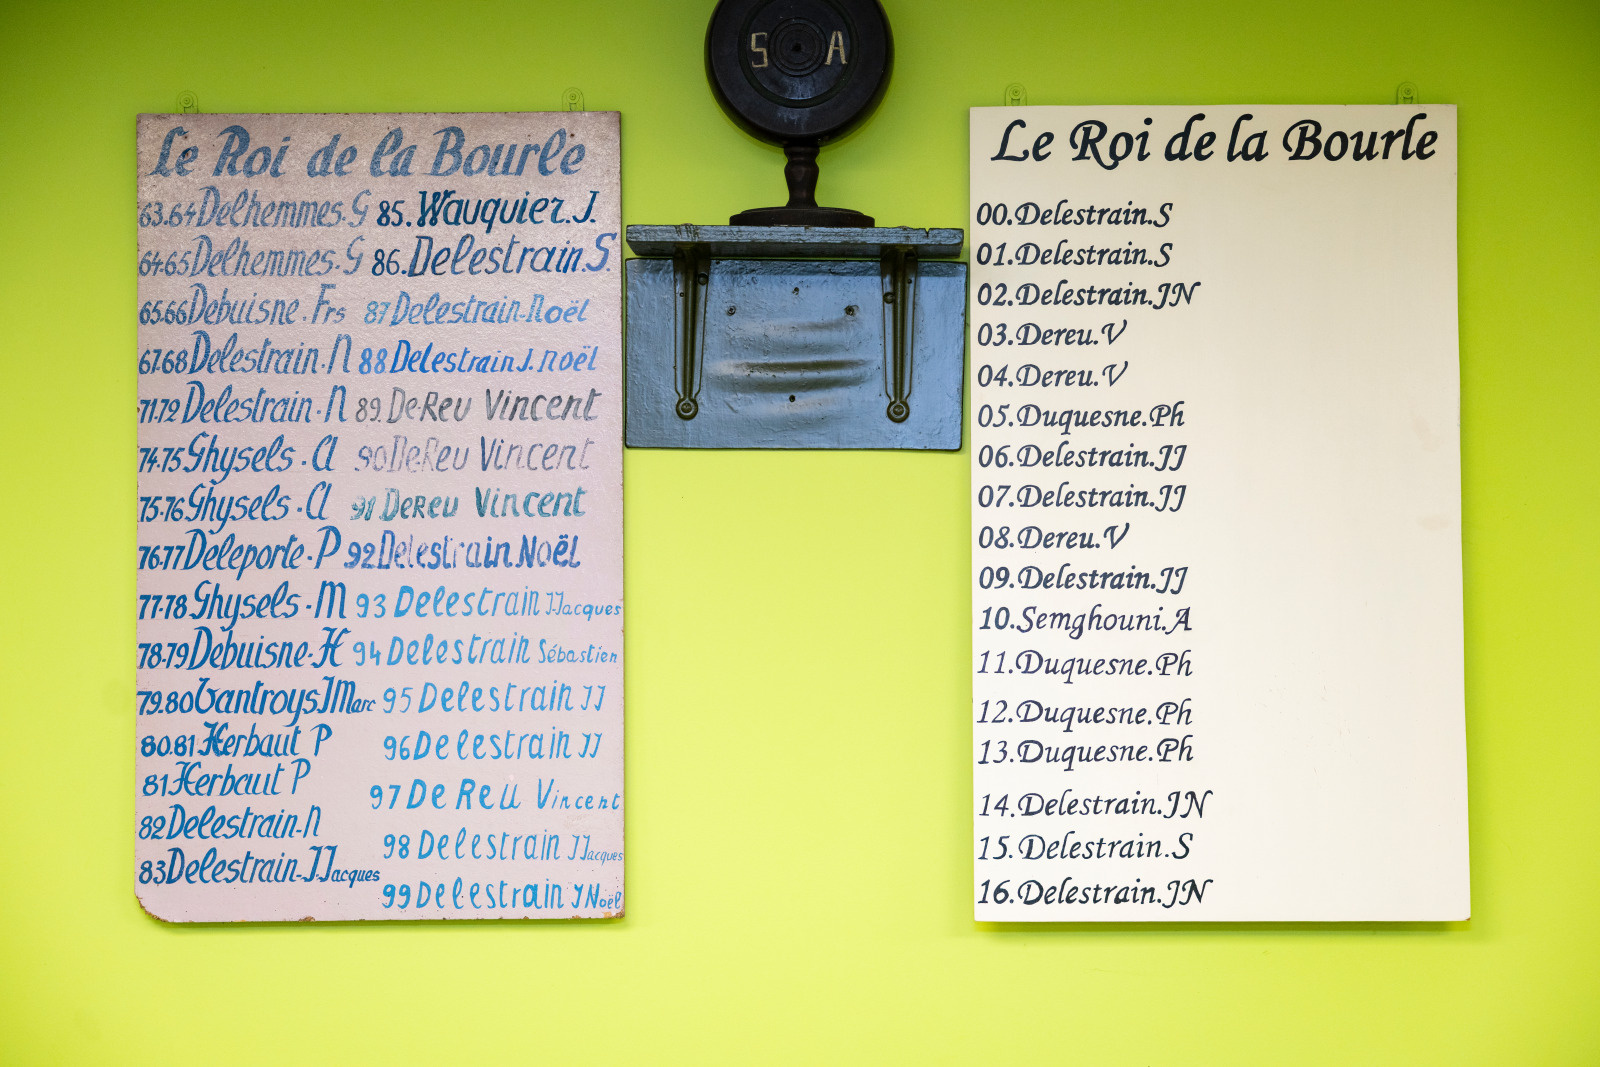 Le Roi de la Bourle
63.64 Delhemmes.G
64.65 Delhemmes.G
65.66 Debuisne.Frs
67.68 Delestrain.N
71.72 Delestrain.N
74.75 Ghysels.Cl
75.76 Ghysels.Cl
76.77 Deleporte.P
77.78 Ghysels.M
78.79 Debuisne.H
79.80 Vantroys JMarc
80.81 Herbaut P
81 Herbaut P
82 Delestrain.N
83 Delestrain.JJacques
85. Wauquier.J.
86. Delestrain.S.
87 Delestrain-Noël
88 Delestrain J. noël
89. De Reu Vincent
90 De Reu Vincent
91 De Reu Vincent
92 Delestrain.Noël
93 Delestrain JJacques
94 Delestrain Sébastien
95 Delestrain JJ
96 Delestrain JJ
97 De Reu Vincent
98 Delestrain JJacques
99 Delestrain JNoël
S A
Le Roi de la Bourle
00.Delestrain.S
01.Delestrain.S
02.Delestrain.JN
03.Dereu.V
04.Dereu.V
05.Duquesne.Ph
06.Delestrain.JJ
07.Delestrain.JJ
08.Dereu.V
09.Delestrain.JJ
10.Semghouni.A
11.Duquesne.Ph
12.Duquesne.Ph
13.Duquesne.Ph
14.Delestrain.JN
15.Delestrain.S
16.Delestrain.JN